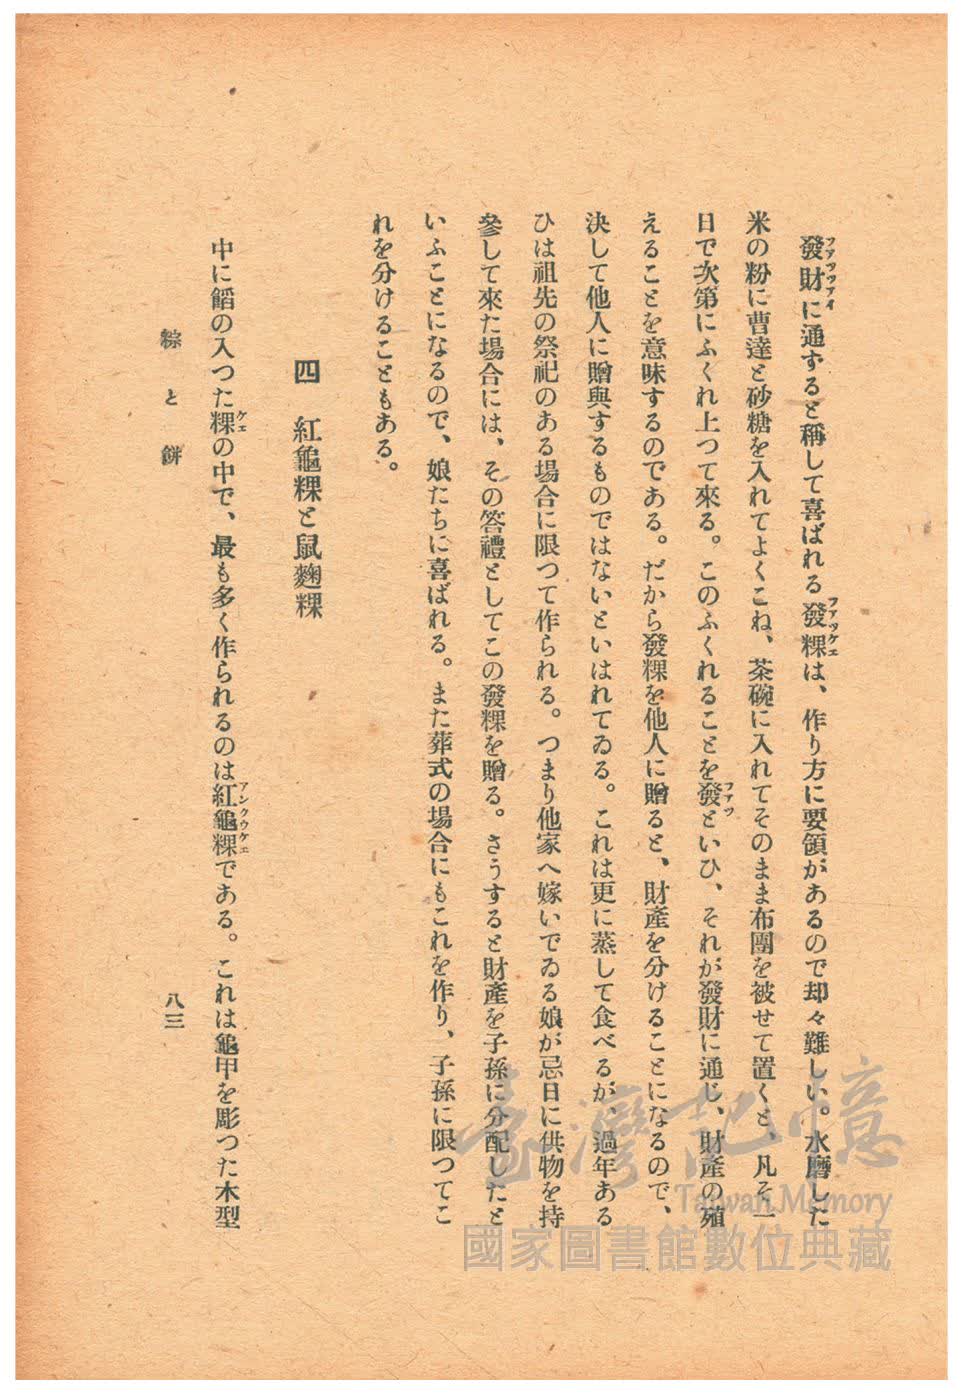 發財に通ずると稱して喜ばれる發粿は、作り方に要領があるので却々難しい。水磨した
ファッツァイ
ファッケェ
米の粉に曹達と砂糖を入れてよくこね、茶碗に入れてそのまま布團を被せて置くと、凡そ一
日で次第にふくれ上つて來る。このふくれることを發といひ、それが發財に通じ、財產の殖
ファッ
えることを意味するのである。だから發粿を他人に贈ると、財產を分けることになるので、
決して他人に贈與するものではないといはれてゐる。これは更に蒸して食べるが、過年ある
ひは祖先の祭祀のある場合に限つて作られる。つまり他家へ嫁いでゐる娘が忌日に供物を持
參して來た場合には、その答禮としてこの發粿を贈る。さうすると財產を子孫に分配したと
いふことになるので、娘たちに喜ばれる。また葬式の場合にもこれを作り、子孫に限つてこ
れを分けることもある。
四　紅龜粿と鼠麴粿
中に餡の入つた粿の中で、最も多く作られるのは紅龜粿である。これは龜甲を彫つた木型
ケェ
アンクウケェ
粽と餅
八三
臺灣記憶
Taiwan Memory
國家圖書館數位典藏